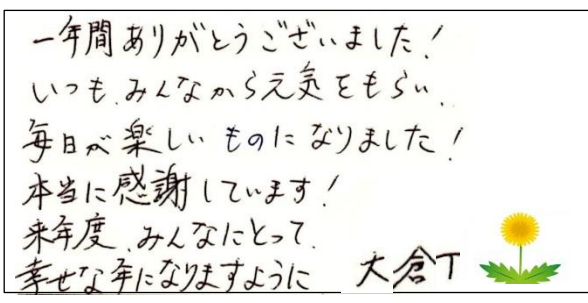 一年間ありがとうございました！
いつも、みんなから元気をもらい、
毎日が楽しいものになりました！
本当に感謝しています！
来年度、みんなにとって、
幸せな年になりますように 大倉T